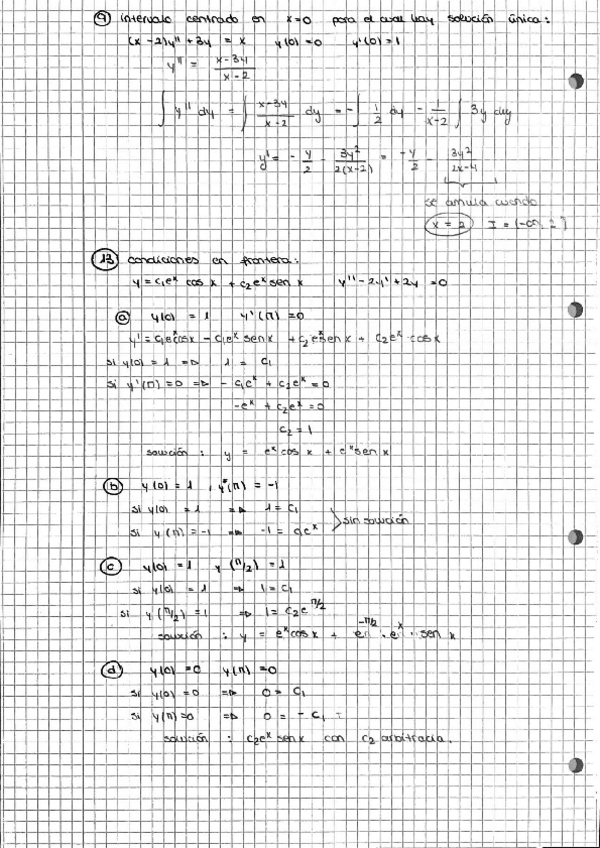 9 intervalo centrado en x=0 para el cual hay solución única:
(x-2)y'' + 3y = x y(0)=0 y'(0)=1
y'' = (x-3y)/(x-2)
∫ y'' dy = ∫ (x-3y)/(x-2) dy = -∫ 1/2 dy - 1/(x-2) ∫ 3y dy
y' = - y/2 - 3y²/(2(x-2)) = -y/2 - 3y²/(2x-4)
se anula cuando
x = 2 I = (-∞, 2)
13 condiciones en frontera:
y = c₁eˣ cos x + c₂eˣ sen x y'' - 2y' + 2y = 0
a y(0) = 1 y'(π) = 0
y' = c₁eˣcosx - c₁eˣ senx + c₂eˣsenx + c₂eˣ cosx
si y(0) = 1 => 1 = c₁
si y'(π) = 0 => - c₁eˣ + c₂eˣ = 0
-eˣ + c₂eˣ = 0
c₂ = 1
solución : y = eˣcos x + eˣsen x
b y(0) = 1 , y(π) = -1
si y(0) = 1 => 1 = c₁
si y(π) = -1 => -1 = c₁eˣ
sin solución
c y(0) = 1 y(π/2) = 1
si y(0) = 1 => 1 = c₁
si y(π/2) = 1 => 1 = c₂e^π/2
solución : y = eˣcos x + e^-π/2 · eˣ · sen x
d y(0) = 0 y(π) = 0
si y(0) = 0 => 0 = c₁
si y(π) = 0 => 0 = - c₁
solución : c₂eˣ senx con c₂ arbitraria.